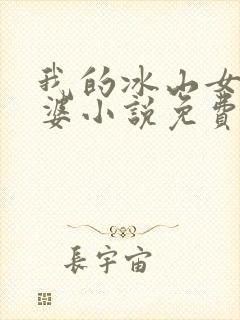 我的冰山女
婆小說免費
長宇宙